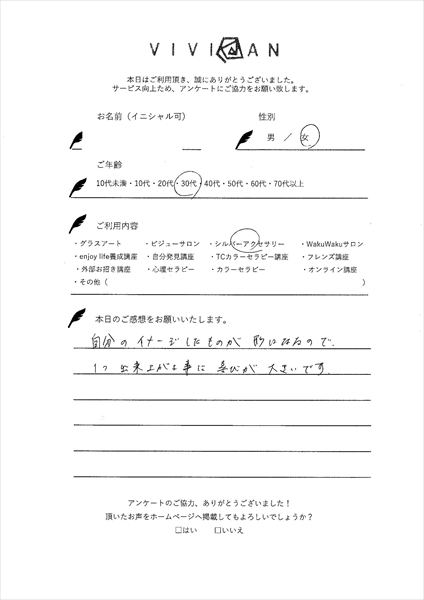 VIVIAN
本日はご利用頂き、誠にありがとうございました。
サービス向上ため、アンケートにご協力をお願い致します。
お名前（イニシャル可） 性別
男 ／ 女
ご年齢
10代未満・10代・20代・30代・40代・50代・60代・70代以上
ご利用内容
・グラスアート ・ビジューサロン ・シルバーアクセサリー ・WakuWakuサロン
・enjoy life養成講座 ・自分発見講座 ・TCカラーセラピー講座 ・フレンズ講座
・外部お招き講座 ・心理セラピー ・カラーセラピー ・オンライン講座
・その他（ ）
本日のご感想をお願いいたします。
自分のイメージしたものが形になるので、
1つ出来上がる事に喜びが大きいです。
アンケートのご協力、ありがとうございました！
頂いたお声をホームページへ掲載してもよろしいでしょうか？
□はい □いいえ